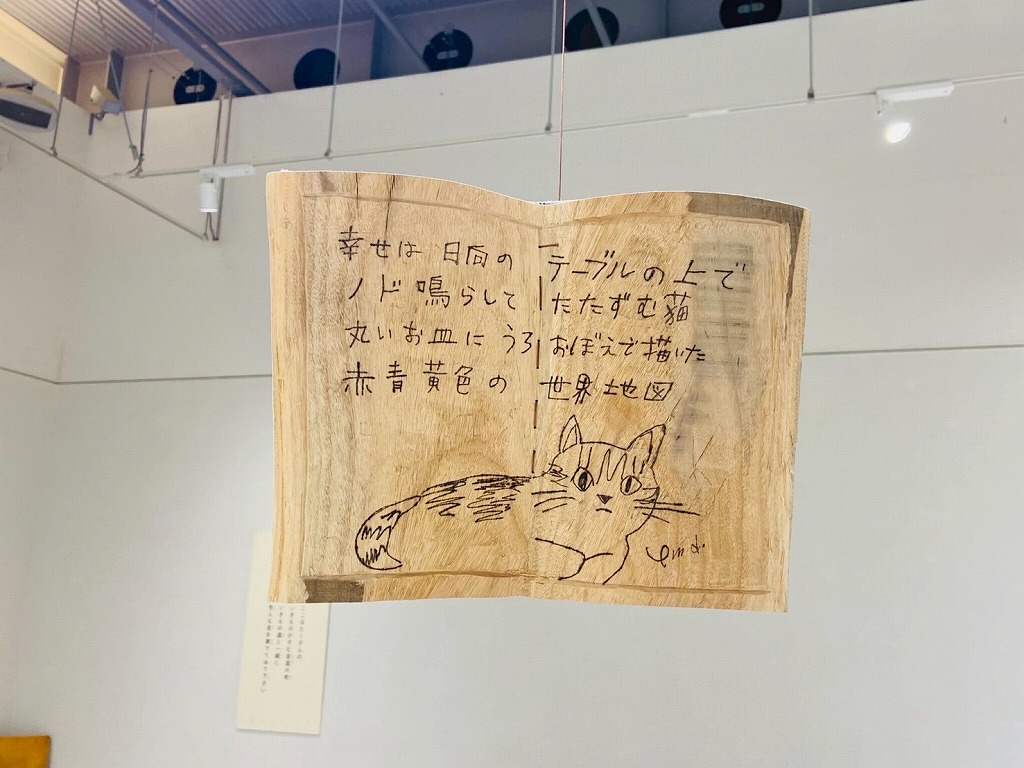 幸せは 日向の テーブルの上で
ノド鳴らして たたずむ猫
丸いお皿に うろおぼえで描いた
赤青黄色の 世界地図